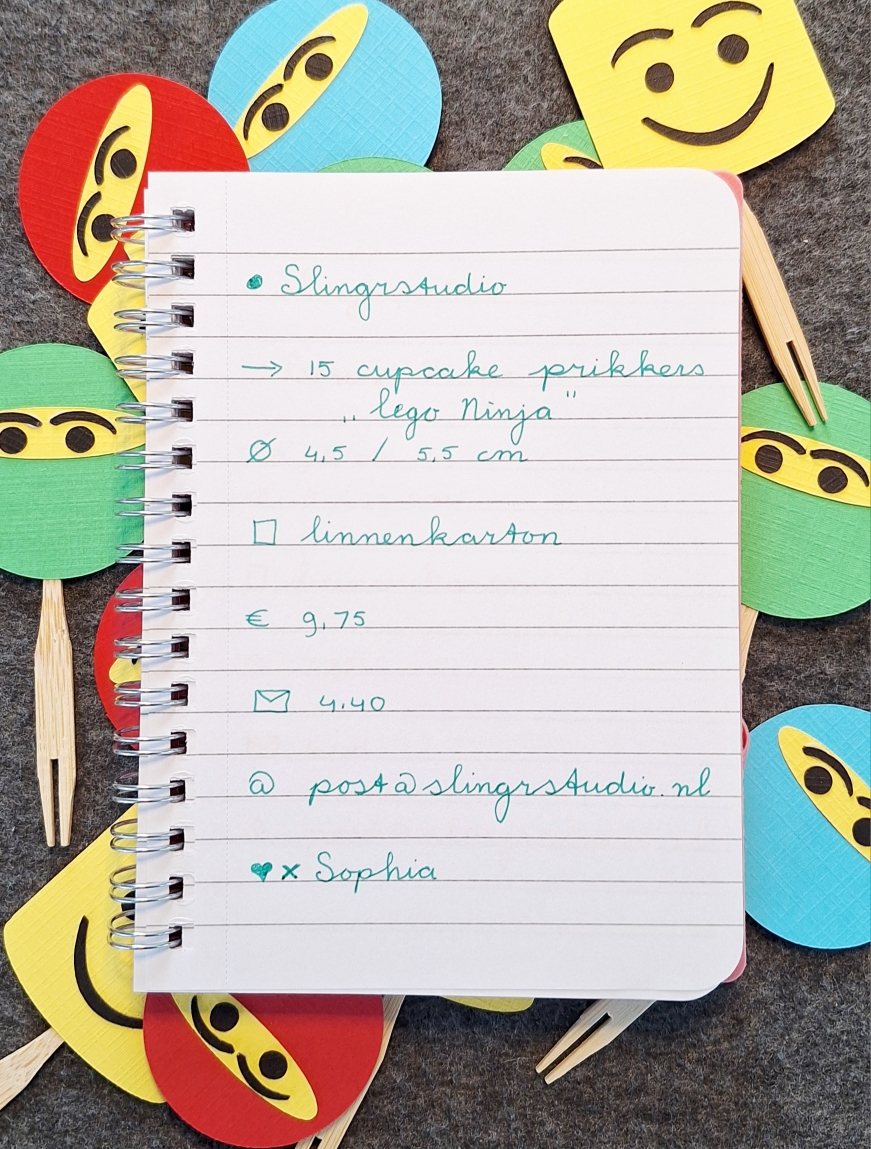 • Slingrstudio
→ 15 cupcake prikkers
„ lego Ninja"
Ø 4,5 / 5,5 cm
□ linnenkarton
€ 9,75
✉ 4.40
@ post@slingrstudio.nl
♥ x Sophia